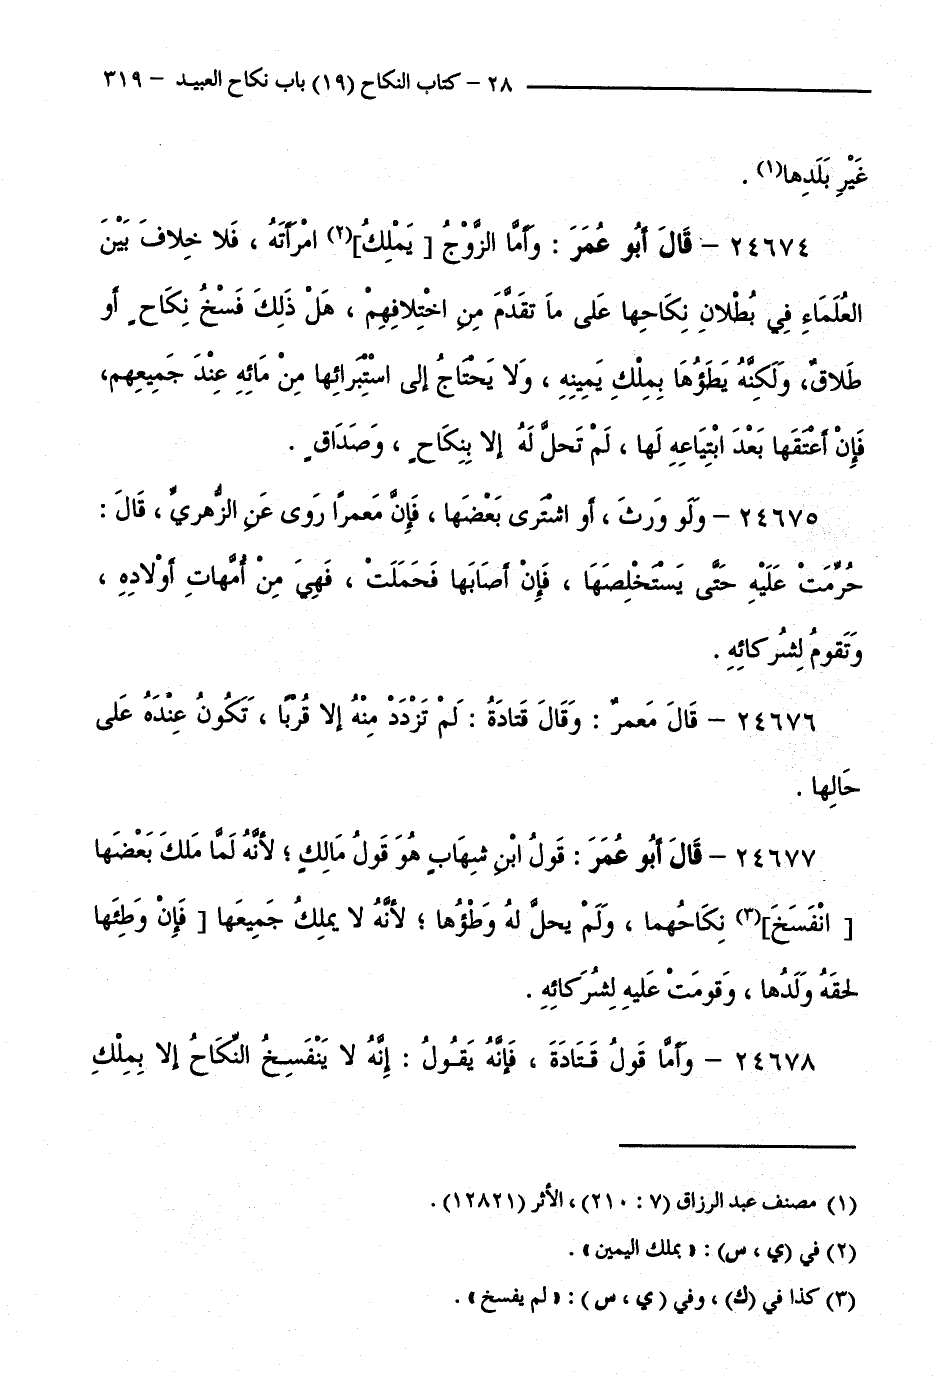 ٢٨ – كتاب النكاح (١٩) باب نكاح العبيد – ٣١٩
غَيْرِ بَلَدِها(١) .
٢٤٦٧٤ – قَالَ أَبُو عُمَرَ : وَأَمَّا الزَّوْجُ [ يَمْلِكُ](٢) امْرَأَتَهُ ، فَلا خِلافَ بَيْنَ
العُلَمَاءِ فِي بُطْلانِ نِكَاحِها عَلى ما تَقدَّمَ مِنِ اخْتِلافِهِمْ ، هَلْ ذَلِكَ فَسْخُ نِكَاحٍ أو
طَلاقٌ، وَلَكِنَّهُ يَطَؤُهَا بِمِلْكِ يَمِينِهِ ، وَلا يَحْتَاجُ إلى اسْتِبْرائِها مِنْ مَائِهِ عِنْدَ جَمِيعِهِم،
فَإِنْ أَعْتَقَها بَعْدَ ابْتِيَاعِهِ لَها ، لَمْ تَحلَّ لَهُ إلا بِنِكَاحٍ ، وَصَدَاقٍ .
٢٤٦٧٥ – وَلَو وَرِثَ ، أو اشْتَرى بَعْضَها ، فَإِنَّ مَعمرًا رَوى عَنِ الزُّهريِّ ، قَالَ :
حُرِّمَتْ عَلَيْهِ حَتَّى يَسْتَخْلِصَهَا ، فَإِنْ أصَابَها فَحَمَلَتْ ، فَهِيَ مِنْ أُمَّهاتِ أوْلادِهِ ،
وَتَقومُ لِشُركائِهِ .
٢٤٦٧٦ – قَالَ مَعمرٌ : وَقَالَ قَتادَةُ : لَمْ تَزْدَدْ مِنْهُ إلا قُرْبًا ، تَكُونُ عِنْدَهُ عَلى
حَالِها .
٢٤٦٧٧ – قَالَ أَبُو عُمَرَ : قَولُ ابْنِ شِهَابٍ هُوَ قَولُ مَالِكٍ ؛ لأنَّهُ لَمَّا مَلكَ بَعْضَها
[ انْفَسَخَ](٣) نِكَاحُهما ، وَلَمْ يحلَّ لهُ وَطْؤُها ؛ لأنَّهُ لا يملِكُ جَمِيعَها [ فَإِنْ وَطِئَها
لحقَهُ وَلَدُها ، وَقومَتْ عَليهِ لِشُرَكائِهِ .
٢٤٦٧٨ – وَأَمَّا قَولُ قَتادَةَ ، فَإِنَّهُ يَقُولُ : إنَّهُ لا يَنْفَسِخُ النِّكَاحُ إلا بِمِلْكِ
(١) مصنف عبد الرزاق (٧ : ٢١٠) ، الأثر (١٢٨٢١) .
(٢) في (ي ، س) : « بملك اليمين » .
(٣) كذا في (ك) ، وفي ( ي ، س ) : « لم يفسخ » .